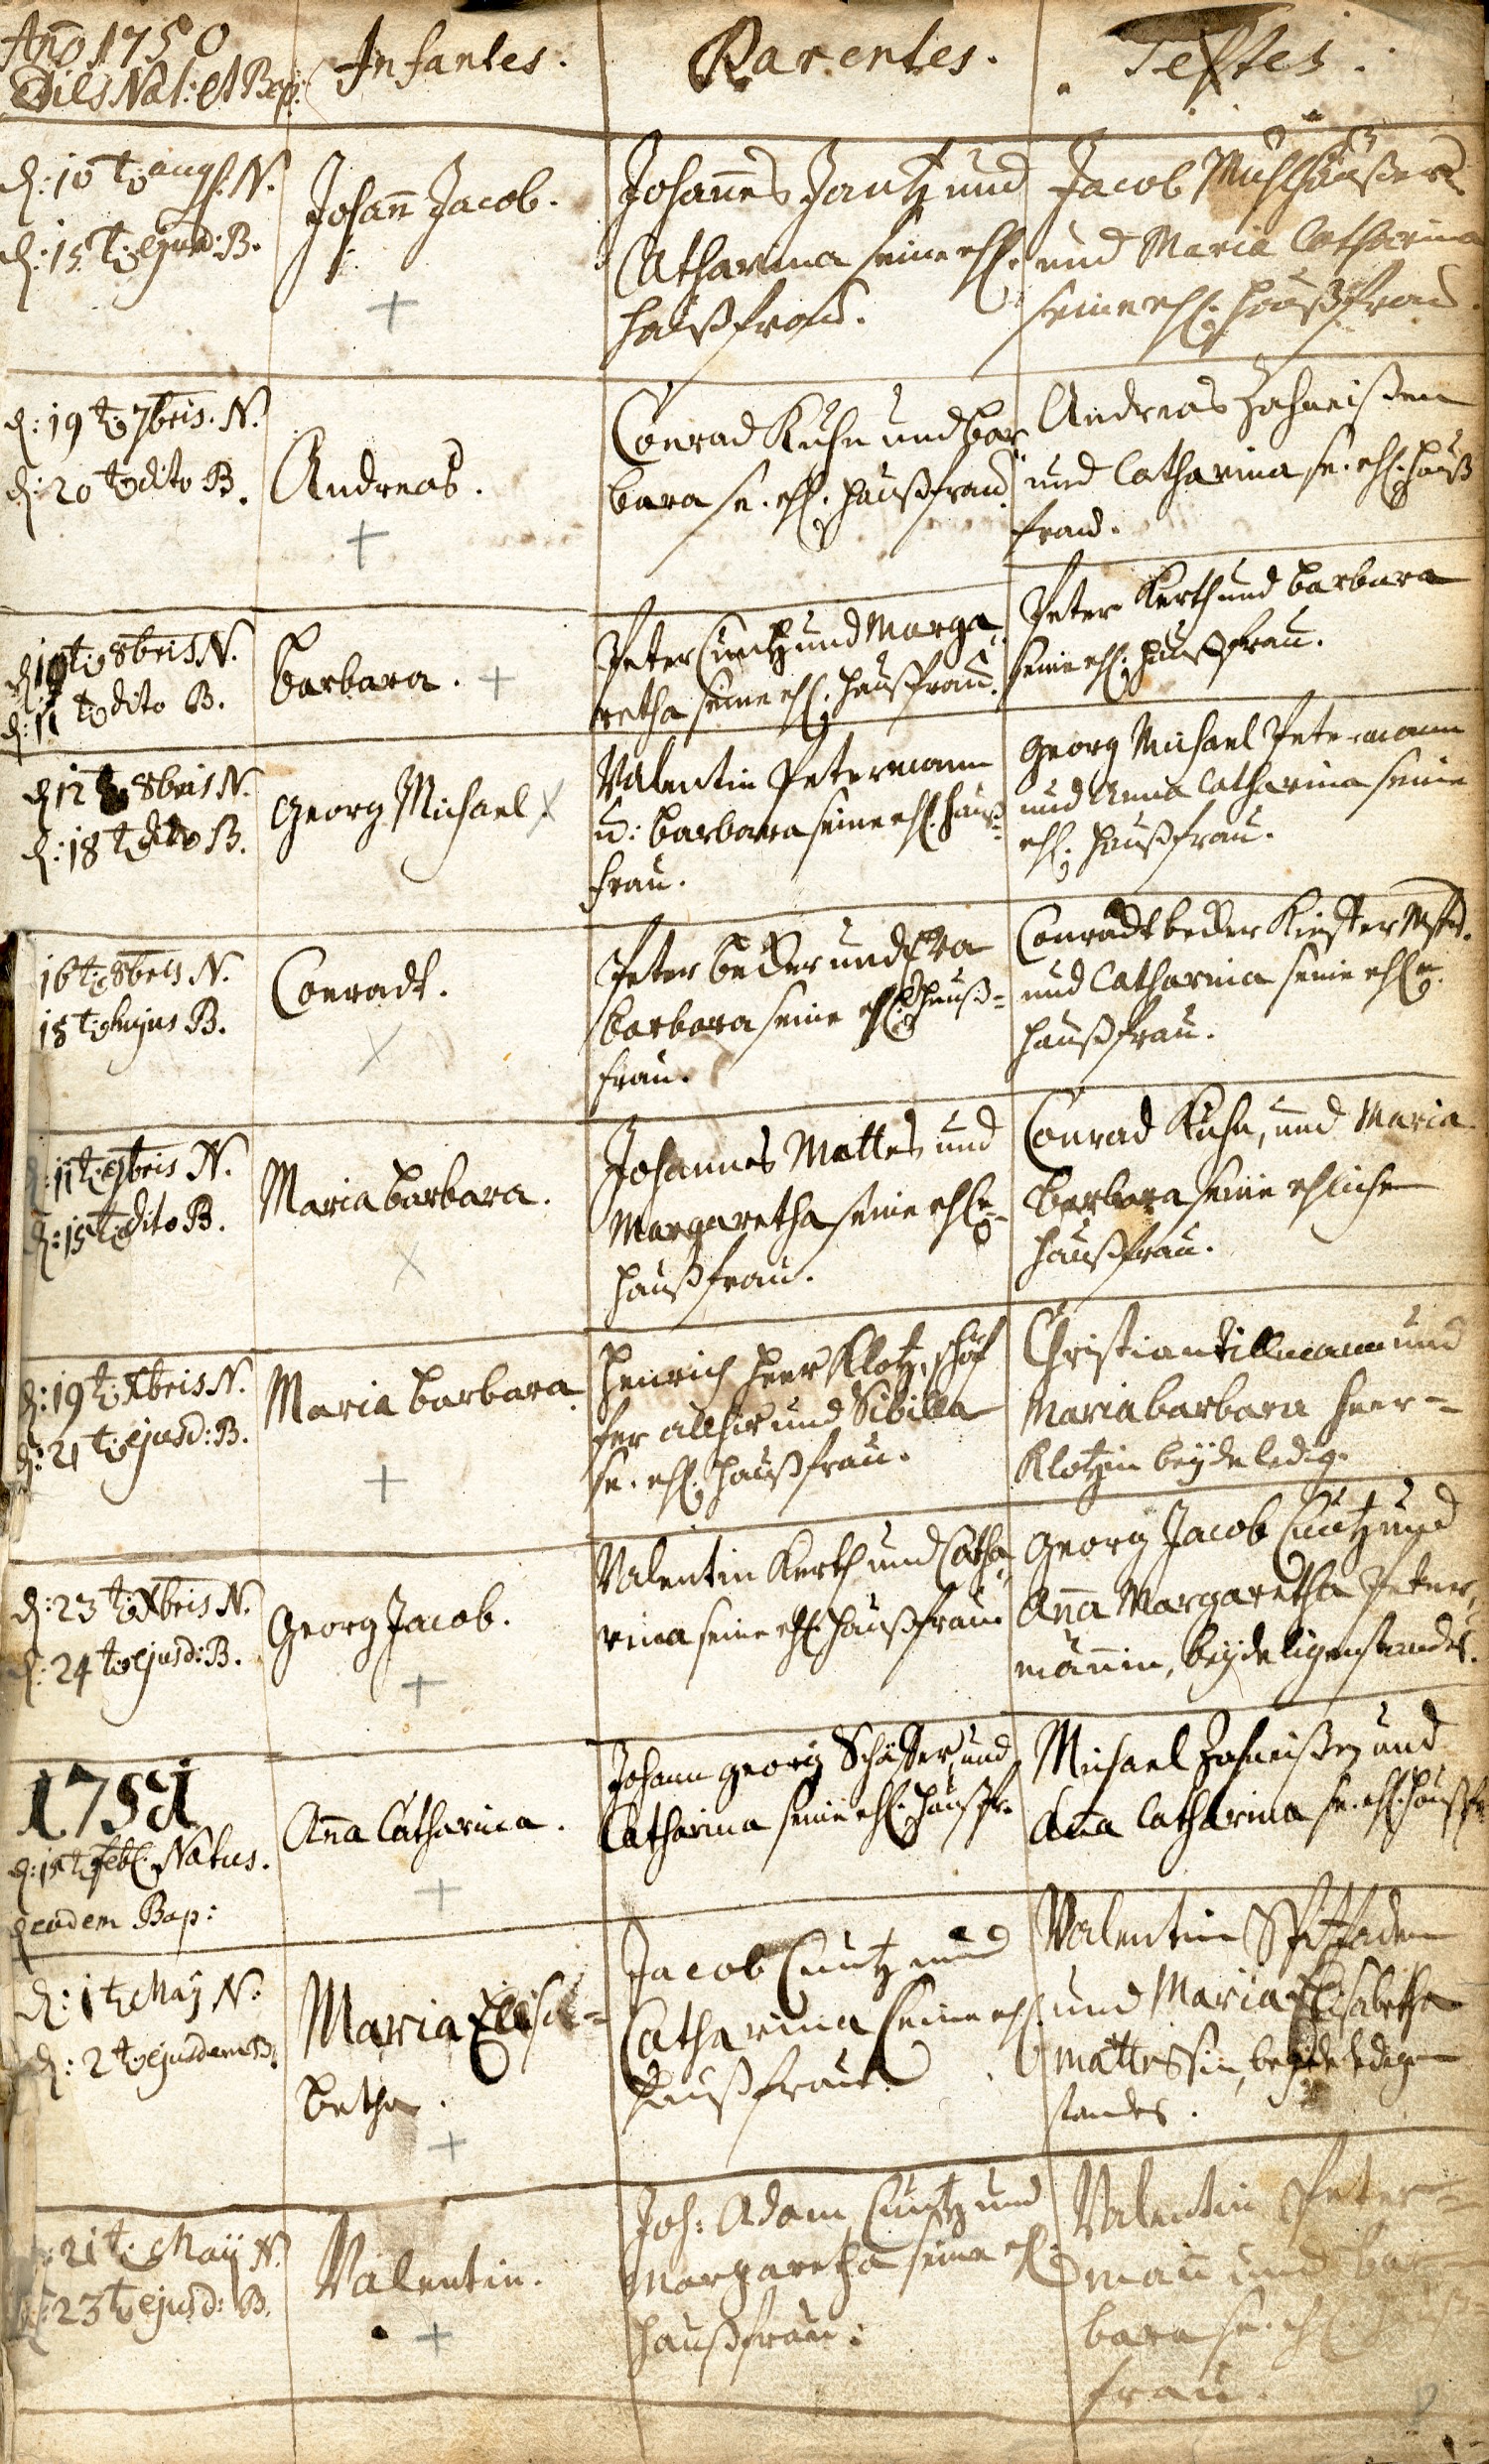 Año 1750
Dies Nat: et Bap:
Infantes.
Parentes.
Testes.
d: 10t augs: N.
d: 15t ejusd: B.
Johañ Jacob.
Johañes Jantz und
Catharina seine ehl.
haußfrau.
Jacob Mühlhäußer
und Maria Catharina
seine ehl. haußfrau.
d: 19t 7bris. N.
d: 20t dito B.
Andreas.
Conrad Kuhn und Bar
bara se. ehl. haußfrau.
Andreas Zahneißen
und Catharina se. ehl. hauß
frau.
d 10t 8bris N.
d: 11t dito B.
Barbara.
Peter Cuntz und Marga
retha seine ehl. haußfrau.
Peter Kerth und Barbara
seine ehl. haußfrau.
d 12t 8bris N.
d: 18t dito B.
Georg Michael.
Valentin Petermann
u: Barbara seine ehl. hauß=
frau.
Georg Michael Petermann
und Anna Catharina seine
ehl. haußfrau.
16t 8bris N.
18t hujus B.
Conradt.
Peter Becker und Eva
Barbara seine ehl. hauß=
frau.
Conradt Becker
und Catharina seine ehle.
haußfrau.
d: 11t 9bris N.
d: 15t dito B.
Maria Barbara.
Johannes Mattes und
Margaretha seine ehle
haußfrau.
Conrad Kuhn, und Maria
Barbara seine ehliche
haußfrau.
d: 19t Xbris N.
d: 21t ejusd: B.
Maria Barbara.
Henrich Heer Klotz, schäf
fer allhir und Sibilla
se. ehl. haußfrau.
Christian Tillmann und
Maria Barbara Heer=
Klotzin beÿde ledig.
d: 23t Xbris N.
d: 24t ejusd: B.
Georg Jacob.
Valentin Kerth und Catha
rina seine ehl. haußfrau
Georg Jacob Cuntz und
Aña Margaretha Peter,
männin, beÿde ligenstandes.
1751
d: 15t febl. Natus.
d eodem Bap:
Aña Catharina.
Johann Georg Schäffer, und
Catharina seine ehl. haußfr.
Michael Zahneißen und
Aña Catharina se. ehl. haußfr
d: 1t Maÿ N.
d: 2t ejusdem B.
Maria Elisa=
betha.
Jacob Cuntz und
Catharina seine ehl.
haußfrau
Valentin Spitfaden
und Maria Elisabetha
Mattessin, beÿde ledigen
standes.
d: 21t Maÿ N.
d: 23t ejusd: B.
Valentin.
Joh: Adam Cuntz und
Margaretha seine ehl.
haußfrau.
Valentin Peter=
mañ und Bar=
bara se. ehl. hauß=
frau.